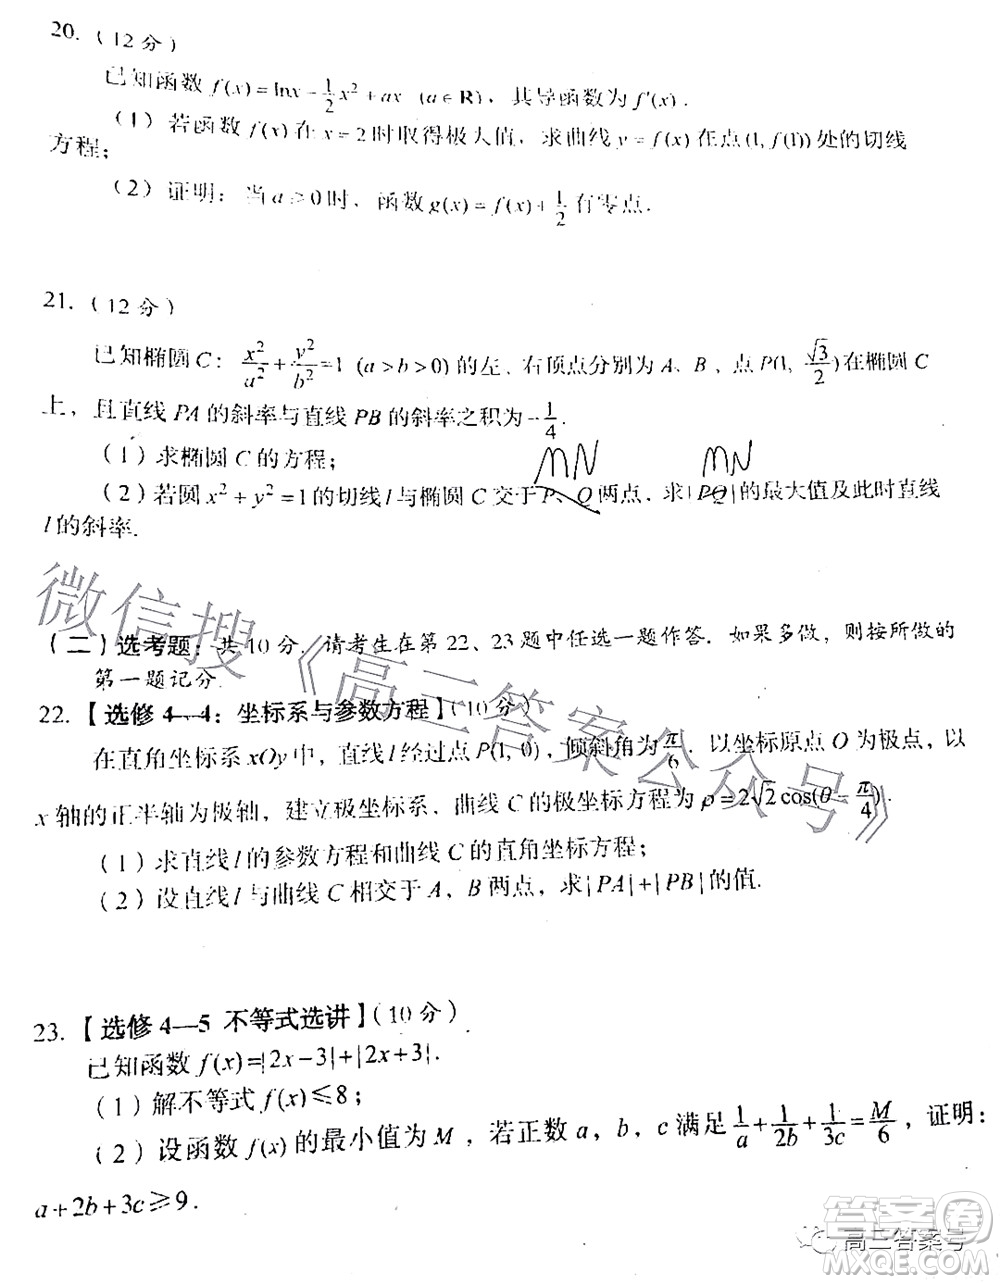 20. （12 分）
已知函数 f(x)=lnx−1/2x²+ax (a∈R)，其导函数为 f'(x).
（1）若函数 f(x) 在 x=2 时取得极大值，求曲线 y=f(x) 在点 (1, f(1)) 处的切线
方程；
（2）证明：当 a≥0 时，函数 g(x)=f(x)+1/2 有零点.
21. （12 分）
已知椭圆 C：x²/a²+y²/b²=1 (a>b>0) 的左、右顶点分别为 A、B，点 P(1, √3/2) 在椭圆 C
上，且直线 PA 的斜率与直线 PB 的斜率之积为 −1/4.
（1）求椭圆 C 的方程；
MN MN
（2）若圆 x²+y²=1 的切线 l 与椭圆 C 交于 P、Q 两点，求|PQ|的最大值及此时直线
l 的斜率.
（二）选考题：共 10 分. 请考生在第 22、23 题中任选一题作答. 如果多做，则按所做的
第一题记分.
22. 【选修 4—4：坐标系与参数方程】（10 分）
在直角坐标系 xOy 中，直线 l 经过点 P(1, 0)，倾斜角为 π/6. 以坐标原点 O 为极点，以
x 轴的正半轴为极轴，建立极坐标系，曲线 C 的极坐标方程为 ρ=2√2cos(θ−π/4).
（1）求直线 l 的参数方程和曲线 C 的直角坐标方程；
（2）设直线 l 与曲线 C 相交于 A、B 两点，求|PA|+|PB|的值.
23. 【选修 4—5 不等式选讲】（10 分）
已知函数 f(x)=|2x−3|+|2x+3|.
（1）解不等式 f(x)≤8；
（2）设函数 f(x) 的最小值为 M，若正数 a，b，c 满足 1/a+1/2b+1/3c=M/6，证明：
a+2b+3c≥9.
微信搜《高三答案公众号》
答案圈
高三答案号